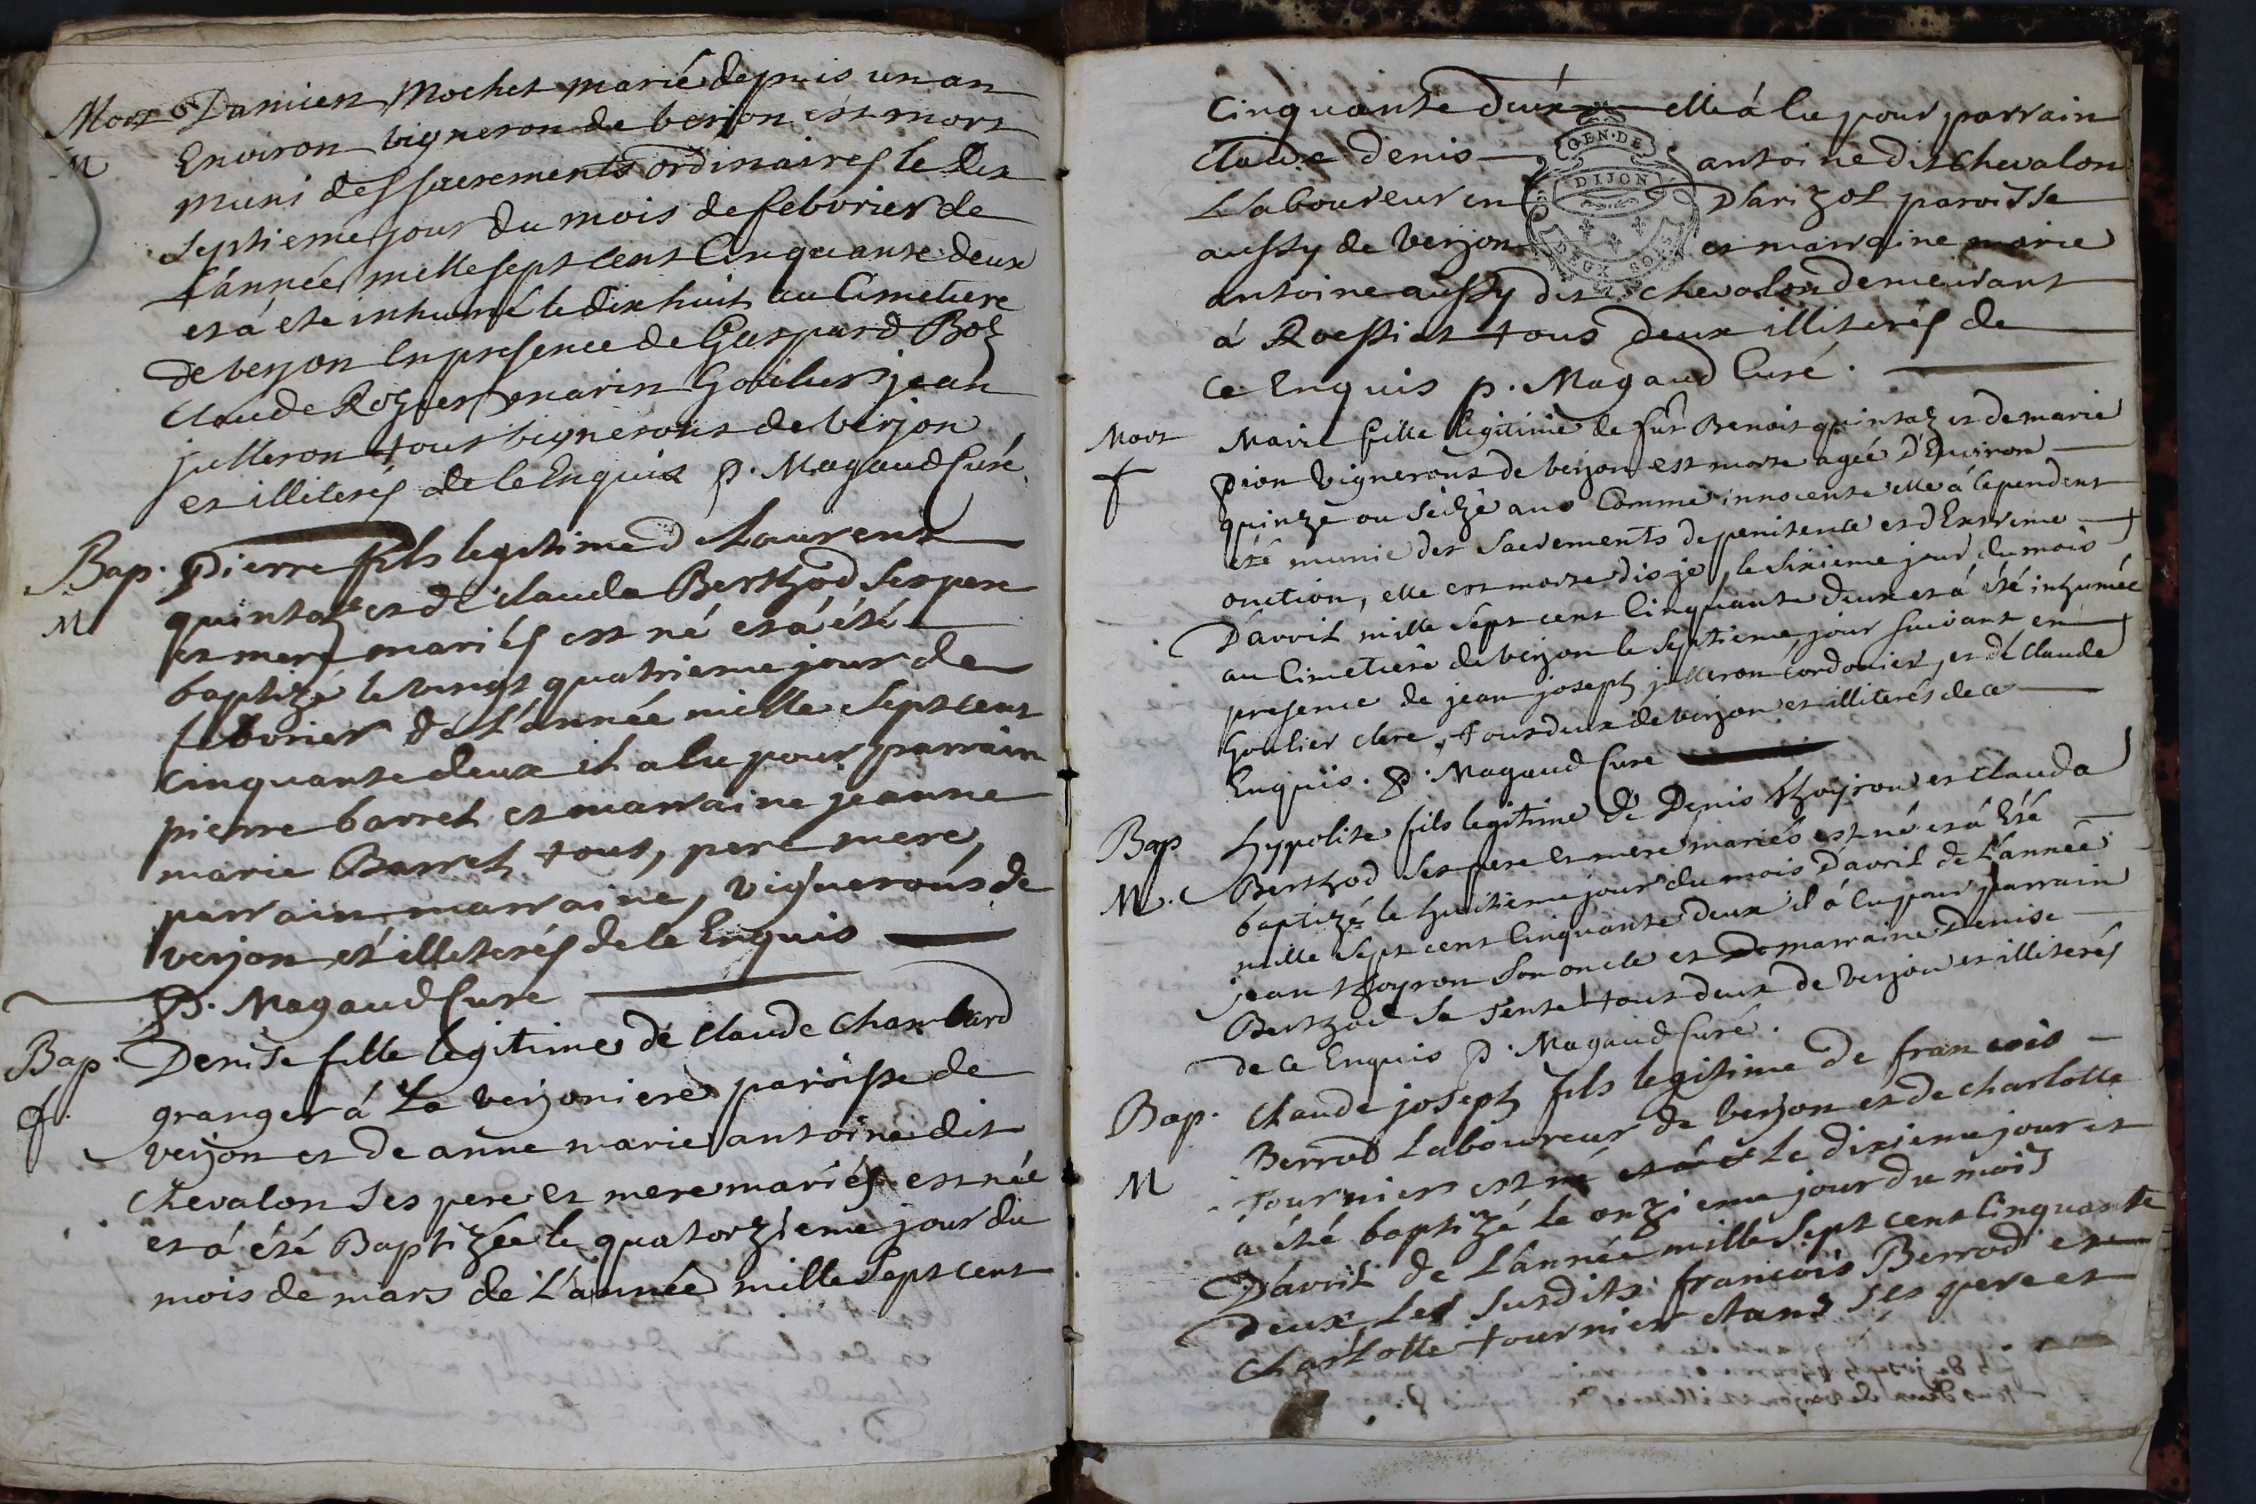 Mort Damien Mochet marié depuis un an
M Environ vigneron de verjon est mort
muni des sacrements ordinaires le dix
septieme jour du mois de febvrier de
L'année mille sept cent Cinquante deux
et á eté inhumé le dix huit au Cimetiere
de verjon En presence de Gaspard Boz
Claude Rozier marin Goulier jean
julleron tous vignerons de verjon
et illiterés de ce Enquis P. Magaud Curé
Bap. Pierre fils legitime de Laurent
M quintaz et de Clauda Berthod ses pere
et mere mariés est né et á été
baptizé le vingt quatrieme jour de
febvrier de L'année mille sept cent
cinquante deux il a Eu pour parrain
pierre barret et marraine jeanne
marie Barret tous, pere mere,
parrain marraine, vignerons de
verjon et illiterés de ce Enquis
P. Magaud Curé
Bap. Denise fille legitime de Claude Chambard
f. granger á La verjoniere paroisse de
verjon et de anne marie antoine dit
Chevalon ses pere et mere mariés est née
et á été Baptizée le quatorzieme jour du
mois de mars de L'année mille sept cent
Cinquante deux elle á Eu pour parrain
Claude denis antoine dit Chevalon
GEN. DE
DIJON
DEUX SOLS
Laboureur en D'arizol paroisse
aussy de Verjon et marraine marie
antoine aussy dit Chevalon demeurant
á Roissiat tous deux illiterés de
Ce Enquis p. Magaud Curé.
Mort Marie fille legitime de fut Benoit quintaz et de marie
f pion vignerons de verjon est morte agée D'Environ
quinze ou seize ans Comme innocente elle á Cependent
été munie des sacrements de penitence et d'Extreme
onction, elle est morte dis je, le sixieme jour du mois
D'avril mille sept cent Cinquante deux et á été inhumée
au Cimetiere de verjon le septieme jour suivant en
presence de jean joseph julleron Cordonier, et de Claude
Goulier clerc, tous deux de verjon et illiterés de ce
Enquis. P. Magaud Curé
Bap hypolite fils legitime de Denis thoyron et Clauda
M. Berthod ses pere et mere mariés est né et á Eté
baptizé le huitieme jour du mois D'avril de L'année
mille sept cent Cinquante deux il á Eu pour parrain
jean thoyron son oncle et marraine Denise
Berthod sa tente tous deux de verjon et illiterés
de ce Enquis P. Magaud Curé.
Bap. Claude joseph fils legitime de francois
M Berrod Laboureur de verjon et de charlotte
Tournier est né et á é Le dixieme jour et
a été baptizé Le onzieme jour du mois
D'avril de L'année mille sept cent Cinquante
deux Les susdits francois Berrod et
Charlotte tournier etans ses pere et